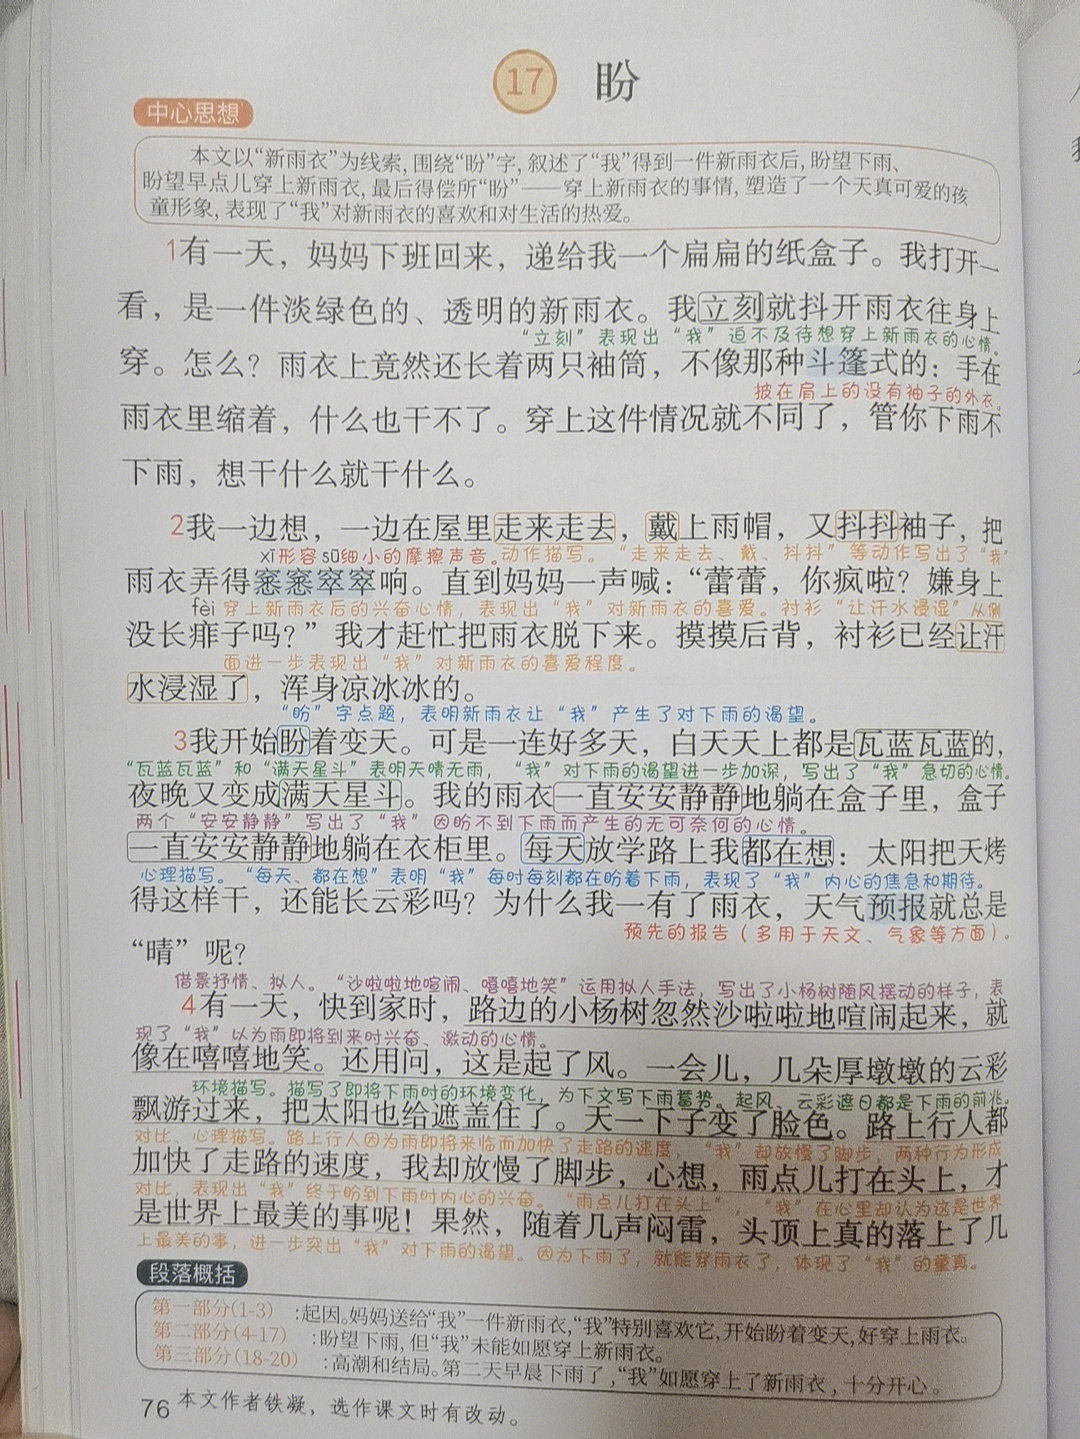 17 盼
中心思想
本文以“新雨衣”为线索,围绕“盼”字,叙述了“我”得到一件新雨衣后,盼望下雨、
盼望早点儿穿上新雨衣,最后得偿所“盼”——穿上新雨衣的事情,塑造了一个天真可爱的孩
童形象,表现了“我”对新雨衣的喜欢和对生活的热爱。
1有一天，妈妈下班回来，递给我一个扁扁的纸盒子。我打开一
看，是一件淡绿色的、透明的新雨衣。我立刻就抖开雨衣往身上
“立刻”表现出“我”迫不及待想穿上新雨衣的心情。
穿。怎么？雨衣上竟然还长着两只袖筒，不像那种斗篷式的：手在
披在肩上的没有袖子的外衣。
雨衣里缩着，什么也干不了。穿上这件情况就不同了，管你下雨不
下雨，想干什么就干什么。
2我一边想，一边在屋里走来走去，戴上雨帽，又抖抖袖子，把
xī形容sū细小的摩擦声音。动作描写。“走来走去、戴、抖抖”等动作写出了“我”
雨衣弄得窸窸窣窣响。直到妈妈一声喊：“蕾蕾，你疯啦？嫌身上
fèi 穿上新雨衣后的兴奋心情，表现出“我”对新雨衣的喜爱。衬衫“让汗水浸湿”从侧
没长痱子吗？”我才赶忙把雨衣脱下来。摸摸后背，衬衫已经让汗
面进一步表现出“我”对新雨衣的喜爱程度。
水浸湿了，浑身凉冰冰的。
“盼”字点题，表明新雨衣让“我”产生了对下雨的渴望。
3我开始盼着变天。可是一连好多天，白天天上都是瓦蓝瓦蓝的，
“瓦蓝瓦蓝”和“满天星斗”表明天晴无雨，“我”对下雨的渴望进一步加深，写出了“我”急切的心情。
夜晚又变成满天星斗。我的雨衣一直安安静静地躺在盒子里，盒子
两个“安安静静”写出了“我”因盼不到下雨而产生的无可奈何的心情。
一直安安静静地躺在衣柜里。每天放学路上我都在想：太阳把天烤
心理描写。“每天、都在想”表明“我”每时每刻都在盼着下雨，表现了“我”内心的焦急和期待。
得这样干，还能长云彩吗？为什么我一有了雨衣，天气预报就总是
预先的报告（多用于天文、气象等方面）。
“晴”呢？
借景抒情、拟人。“沙啦啦地喧闹、嘻嘻地笑”运用拟人手法，写出了小杨树随风摆动的样子，表
4有一天，快到家时，路边的小杨树忽然沙啦啦地喧闹起来，就
现了“我”以为雨即将到来时兴奋、激动的心情。
像在嘻嘻地笑。还用问，这是起了风。一会儿，几朵厚墩墩的云彩
环境描写。描写了即将下雨时的环境变化，为下文写下雨蓄势。起风、云彩遮日都是下雨的前兆。
飘游过来，把太阳也给遮盖住了。天一下子变了脸色。路上行人都
对比、心理描写。路上行人因为雨即将来临而加快了走路的速度，“我”却放慢了脚步，两种行为形成
加快了走路的速度，我却放慢了脚步，心想，雨点儿打在头上，才
对比，表现出“我”终于盼到下雨时内心的兴奋。“雨点儿打在头上”，“我”在心里却认为这是世界
是世界上最美的事呢！果然，随着几声闷雷，头顶上真的落上了几
上最美的事，进一步突出“我”对下雨的渴望。因为下雨了，就能穿雨衣了，体现了“我”的童真。
段落概括
第一部分(1-3) :起因。妈妈送给“我”一件新雨衣,“我”特别喜欢它,开始盼着变天,好穿上雨衣。
第二部分(4-17) :盼望下雨,但“我”未能如愿穿上新雨衣。
第三部分(18-20) :高潮和结局。第二天早晨下雨了,“我”如愿穿上了新雨衣,十分开心。
76 本文作者铁凝，选作课文时有改动。